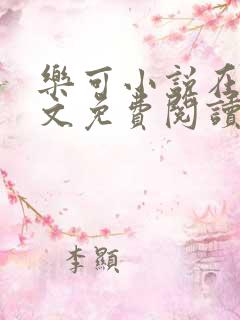 樂可小說在
文免費閱讀
李顯